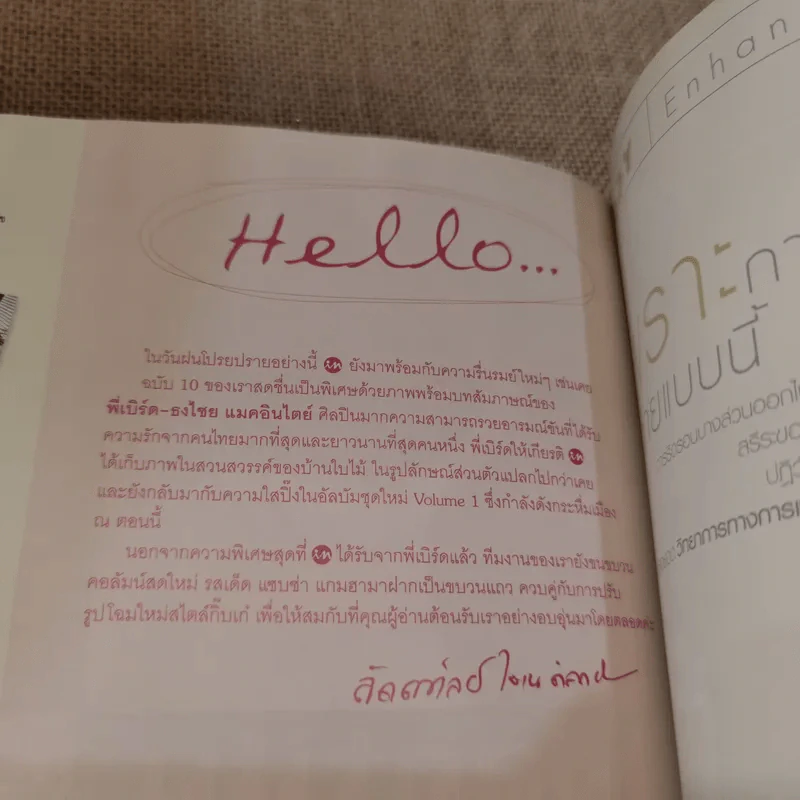 Hello...
ในวันฝนโปรยปรายอย่างนี้ in ยังมาพร้อมกับความรื่นรมย์ใหม่ๆ เช่นเคย
ฉบับ 10 ของเราสดชื่นเป็นพิเศษด้วยภาพพร้อมบทสัมภาษณ์ของ
พี่เบิร์ด-ธงไชย แมคอินไตย์ ศิลปินมากความสามารถรวยอารมณ์ขันที่ได้รับ
ความรักจากคนไทยมากที่สุดและยาวนานที่สุดคนหนึ่ง พี่เบิร์ดให้เกียรติ in
ได้เก็บภาพในสวนสวรรค์ของบ้านใบไม้ ในรูปลักษณ์ส่วนตัวแปลกไปกว่าเคย
และยังกลับมากับความใสปิ๊งในอัลบัมชุดใหม่ Volume 1 ซึ่งกำลังดังกระหึ่มเมือง
ณ ตอนนี้
นอกจากความพิเศษสุดที่ in ได้รับจากพี่เบิร์ดแล้ว ทีมงานของเรายังขนขบวน
คอลัมน์สดใหม่ รสเด็ด แซบซ่า แกมฮามาฝากเป็นขบวนแถว ควบคู่กับการปรับ
รูปโฉมใหม่สไตล์กิ๊บเก๋ เพื่อให้สมกับที่คุณผู้อ่านต้อนรับเราอย่างอบอุ่นมาโดยตลอดค่ะ
Enhan
แบบนี้
บางส่วนออกไ
สรีระขอ
ปฏิ
วิทยาการทางการแ